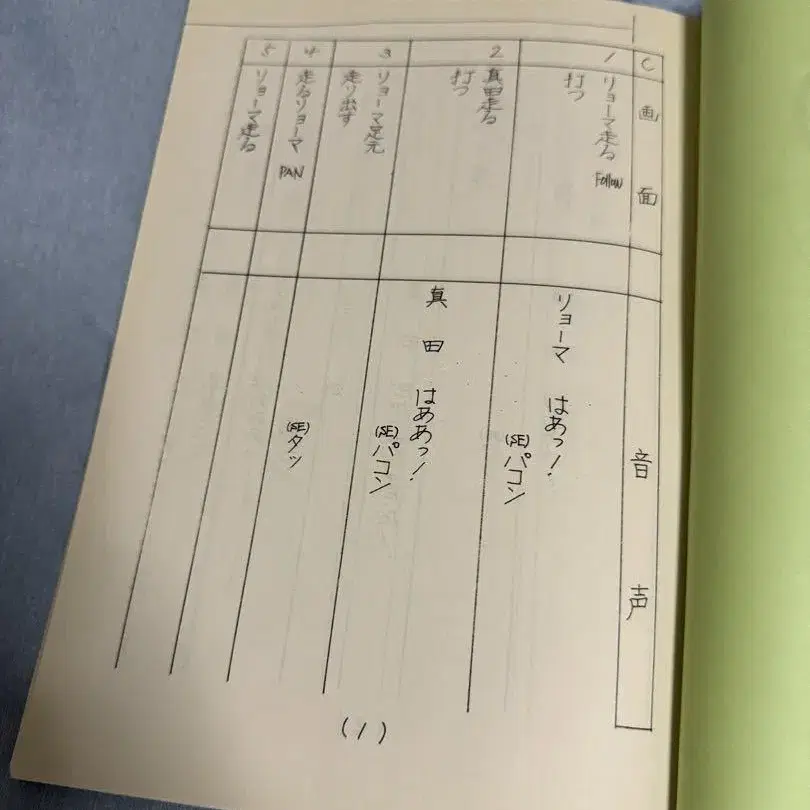 C 画面 音声
1
リョーマ走る Follow
打つ
リョーマ はあっ!
(SE)パコン
2
真田走る
打つ
真田 はああっ!
(SE)パコン
3
リョーマ足元
走り出す
4
走るリョーマ PAN
(SE)タッ
5
リョーマ走る
(1)